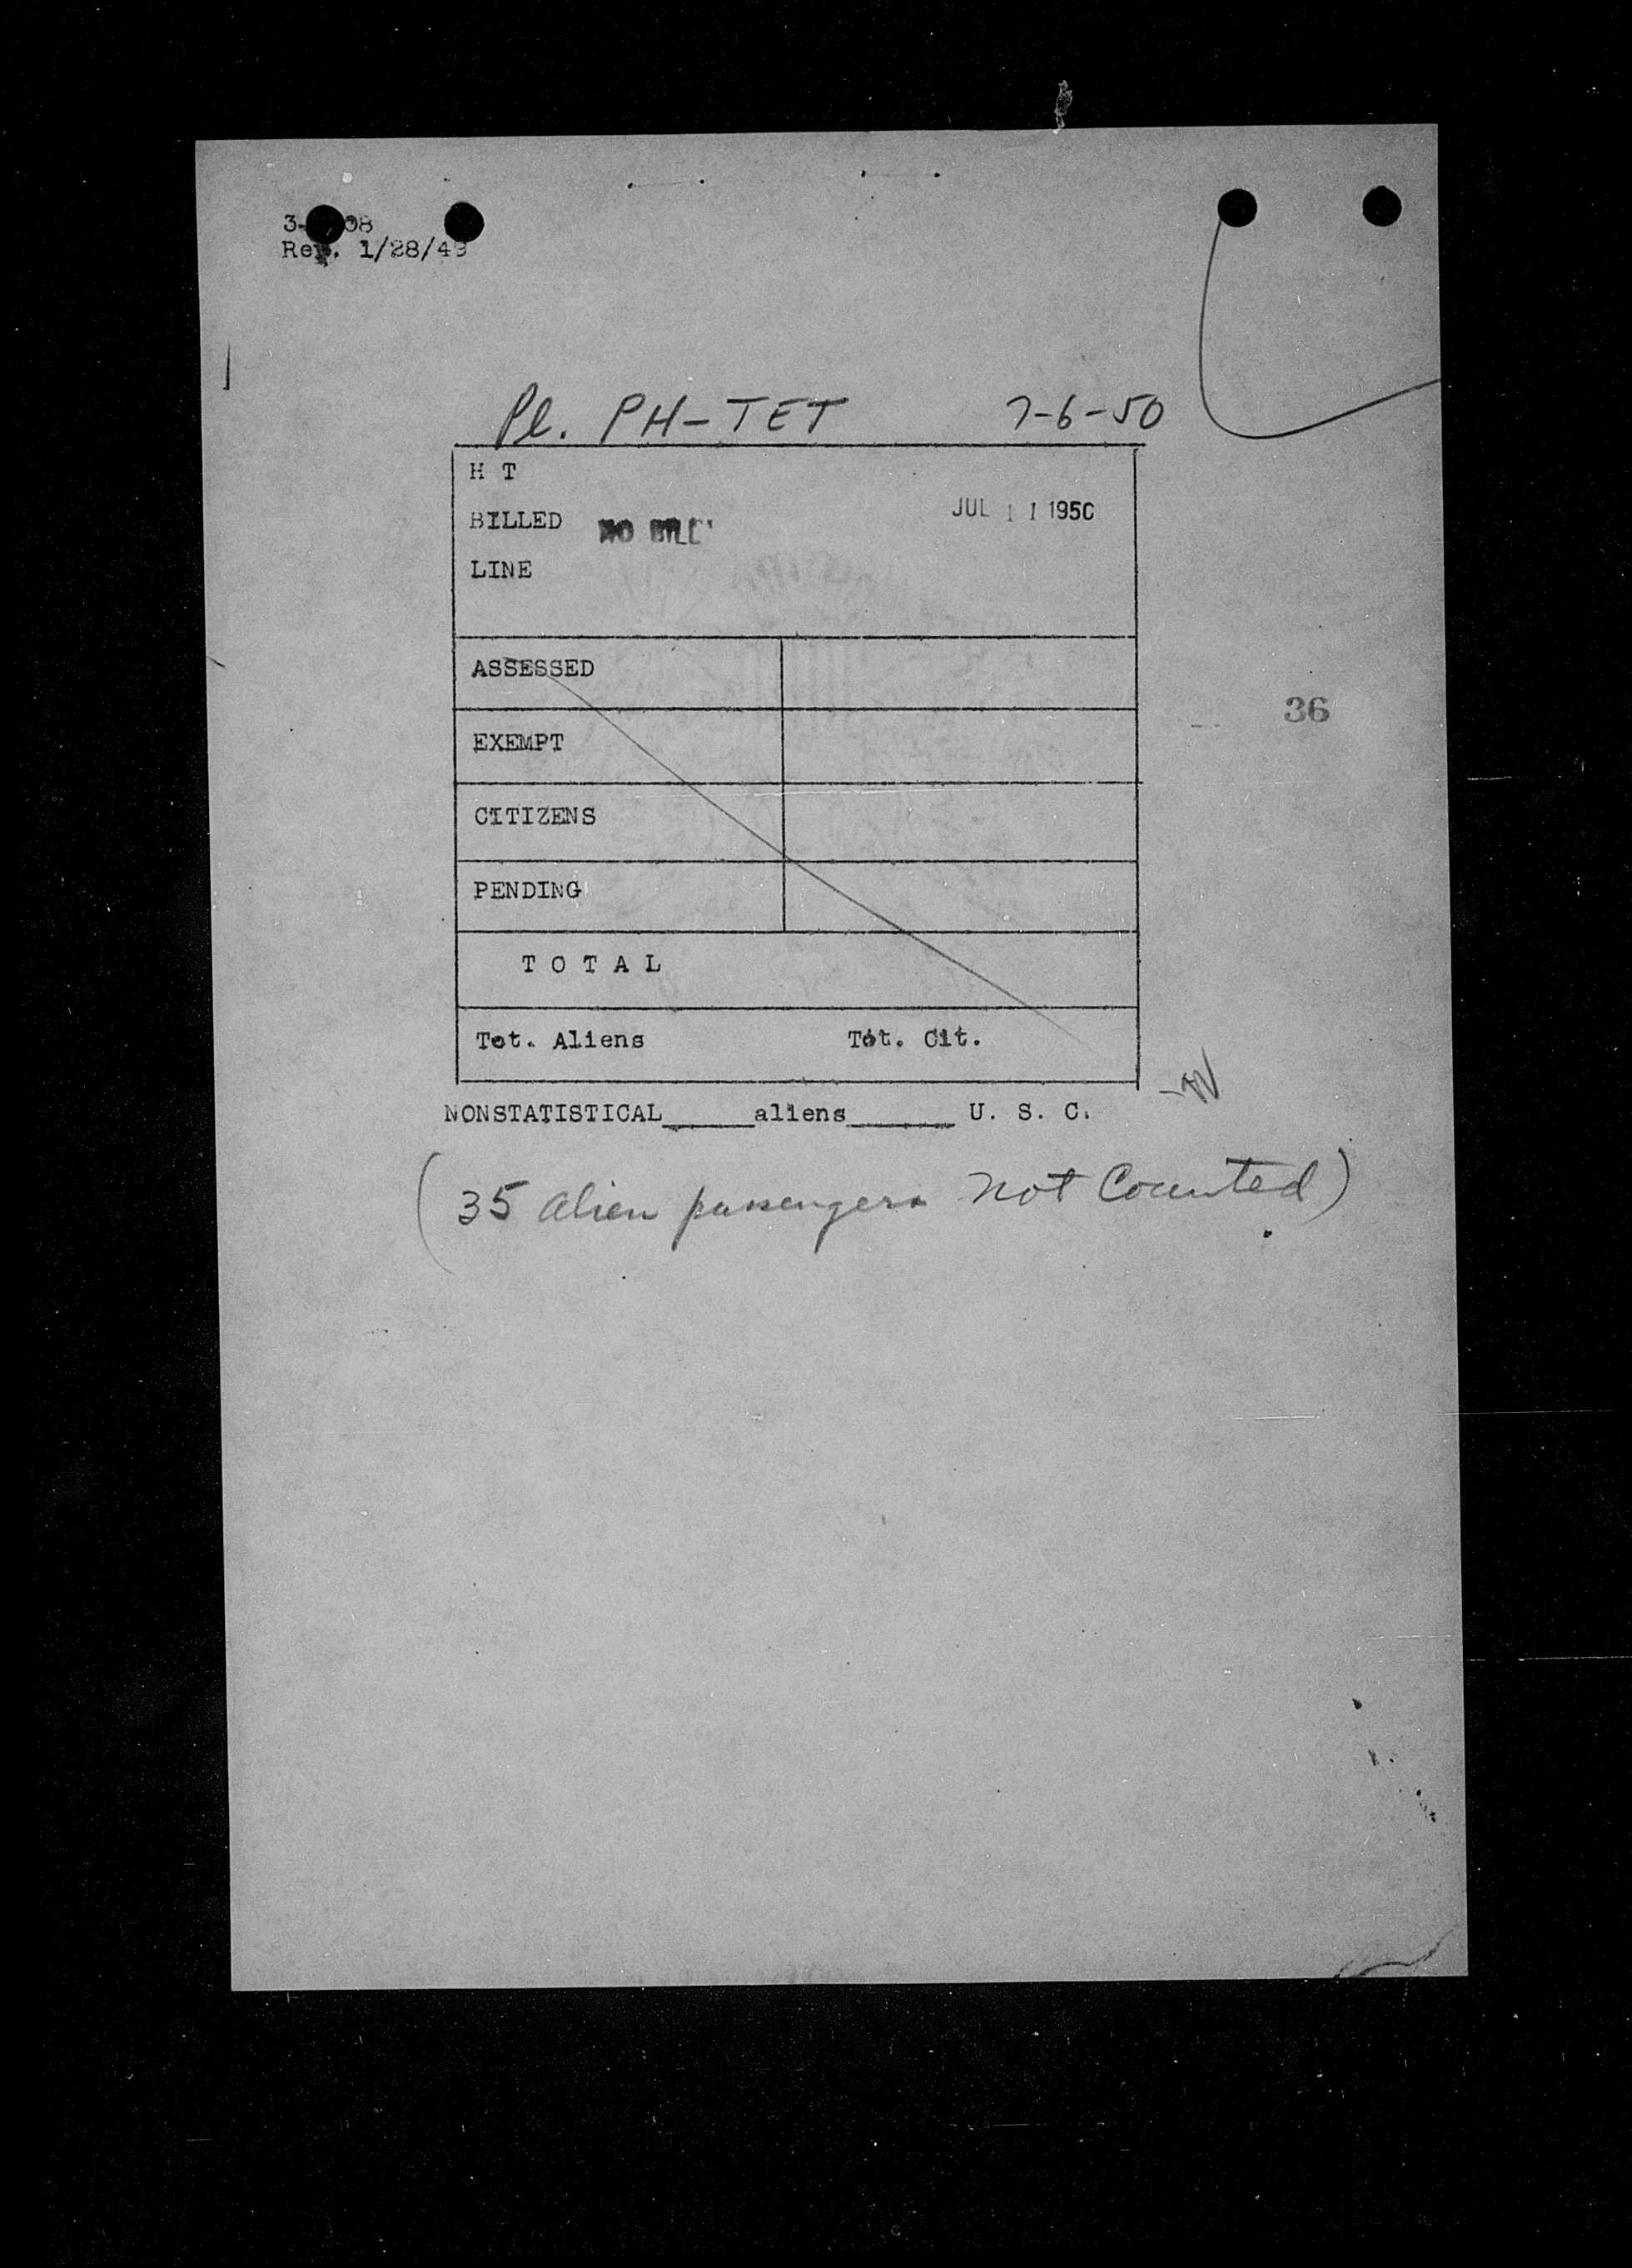 Rev. 1/28/49
Pl. PH-TET 7-6-50
H T
BILLED NO BILL JUL 11 1950
LINE
ASSESSED
36
EXEMPT
CITIZENS
PENDING
T O T A L
Tot. Aliens Tot. Cit.
NONSTATISTICAL_____aliens______ U. S. C.
(35 alien passengers not Counted)